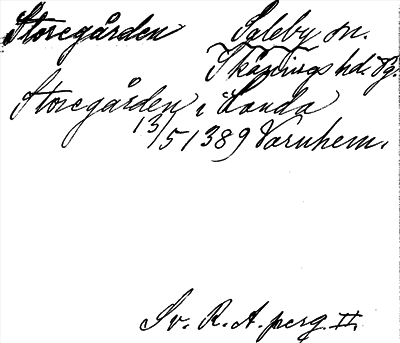 Storegården Saleby sn.
Skånings hd. Vg.
Storegården i Landa
13/5 1389 Varnhem.
Sv. R. A. perg. II.